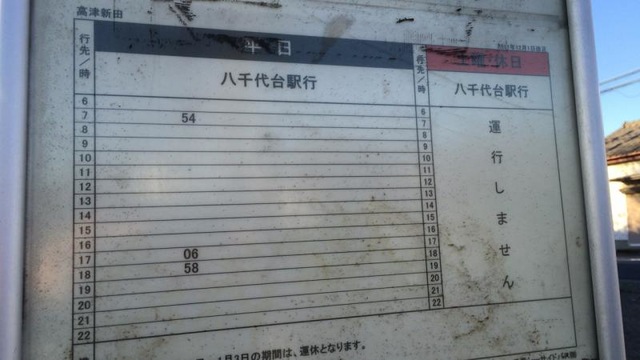 高津新田
行先／時
平日
八千代台駅行
6
7 54
8
9
10
11
12
13
14
15
16
17 06
18 58
19
20
21
22
行先／時
土曜・休日
八千代台駅行
6
7
8
9
10
11
12
13
14
15
16
17
18
19
20
21
22
運行しません
1月3日の期間は、運休となります。